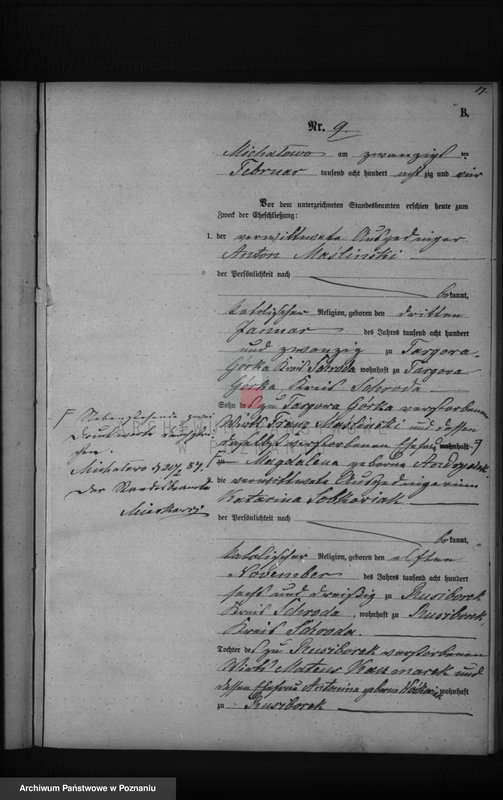 17.
B.
Nr. 9
Michalowo am zwanzigsten
Februar tausend acht hundert achtzig und vier
Vor dem unterzeichneten Standesbeamten erschien heute zum
Zweck der Eheschließung:
1. der verwittwete Ausgedinger
Anton Maslinski
der Persönlichkeit nach
bekannt,
katolischer Religion, geboren den dritten
Januar des Jahres tausend acht hundert
und zwanzig zu Targowa-
Górka Kreis Schroda wohnhaft zu Targowa
Górka Kreis Schroda
Sohn des zu Targowa Górka verstorbenen
Wirth Franz Maslinski und dessen
daselbst verstorbenen Ehefrau wohnhaft
zu Magdalena geborne
2. die verwittwete Ausgedingerin
Katarina Sobkowiak
der Persönlichkeit nach
bekannt,
katolischer Religion, geboren den elften
November des Jahres tausend acht hundert
sechs und dreißig zu Rusiborek
Kreis Schroda, wohnhaft zu Rusiborek
Kreis Schroda
Tochter des zu Rusiborek verstorbenen
Wirth Mateus Kaczmarek und
dessen Ehefrau Antonina geborne wohnhaft
zu Rusiborek
Nebenstehende zwei
Druckworte
Michalowo d. 20/2 84.
Der Standesbeamte
ARCHIWUM PAŃSTWOWE
W POZNANIU
Archiwum Państwowe w Poznaniu